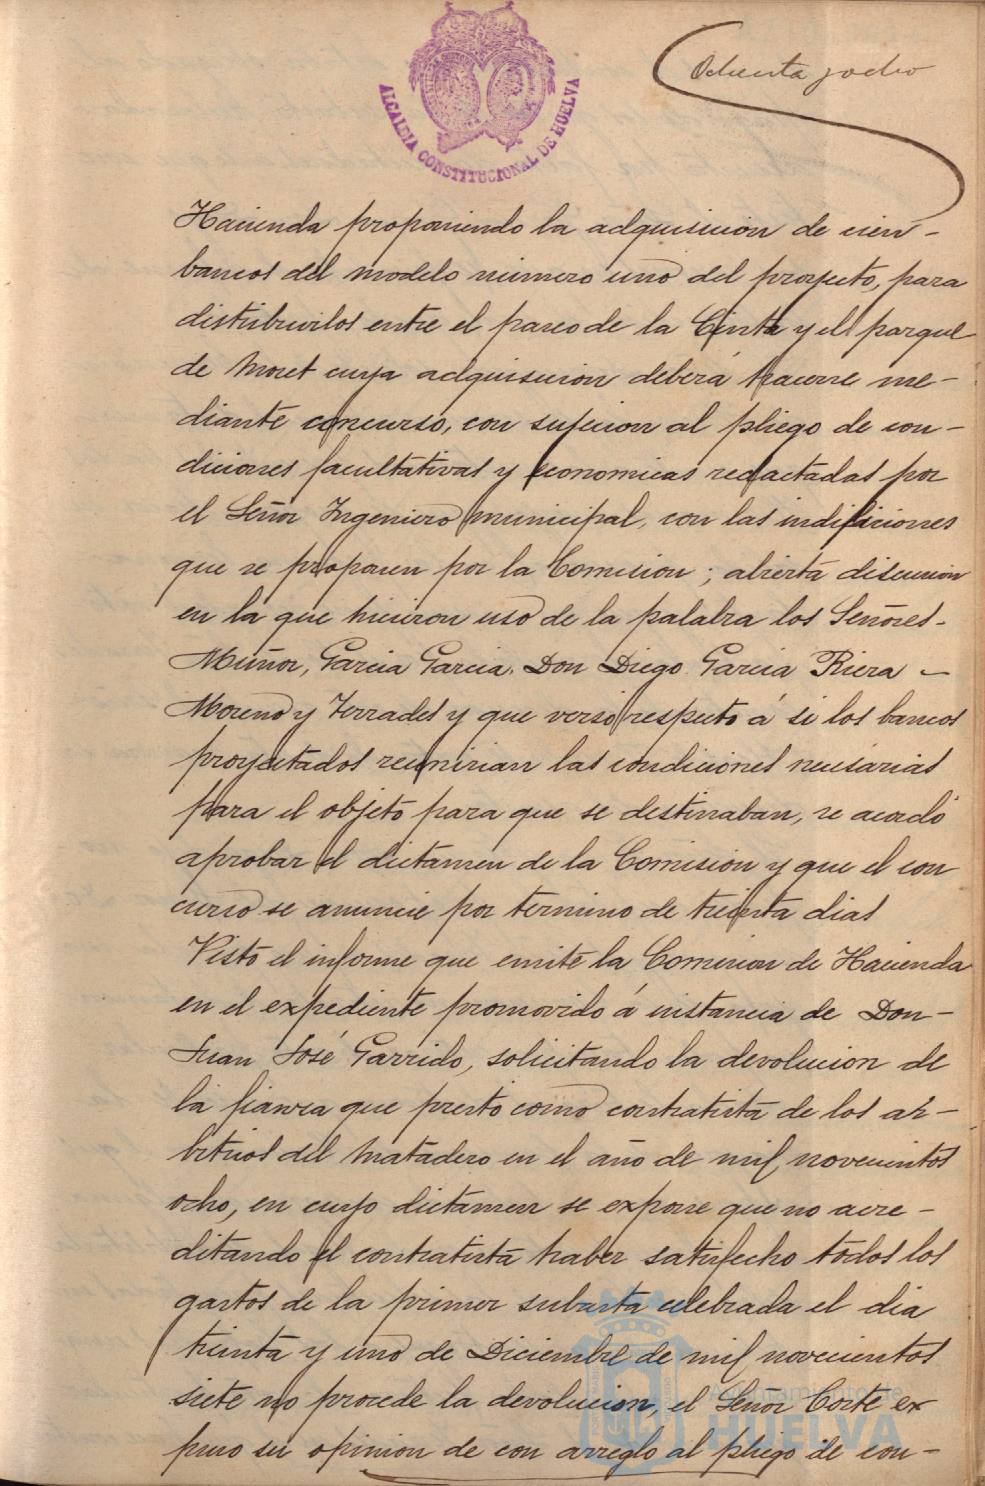 ALCALDIA CONSTITUCIONAL DE HUELVA
Ochenta y ocho
Hacienda proponiendo la adquisicion de cien-
bancos del modelo número uno del proyecto, para
distribuirlos entre el paseo de la Cinta y el parque
de Moret cuya adquisicion deberá hacerse me-
diante concurso, con sujecion al pliego de con-
diciones facultativas y economicas redactadas por
el Señor Ingeniero municipal, con las
que se proponen por la Comision; abierta discusion
en la que hicieron uso de la palabra los Señores-
Muñoz, Garcia Garcia, Don Diego Garcia Riera -
Moreno y Terrades y que versó respecto á si los bancos
proyectados reunirian las condiciones necesarias
para el objeto para que se destinaban, se acordó
aprobar el dictamen de la Comision y que el con
curso se anuncie por termino de treinta dias
Visto el informe que emite la Comision de Hacienda
en el expediente promovido á instancia de Don-
Juan José Garrido, solicitando la devolucion de
la fianza que prestó como contratista de los ar-
bitrios del Matadero en el año de mil novecientos
ocho, en cuyo dictamen se expone que no acre-
ditando el contratista haber satisfecho todos los
gastos de la primer subasta celebrada el dia
treinta y uno de Diciembre de mil novecientos
siete no procede la devolucion, el Señor Corte ex
puso su opinion de con arreglo al pliego de con-
Ayuntamiento de
HUELVA